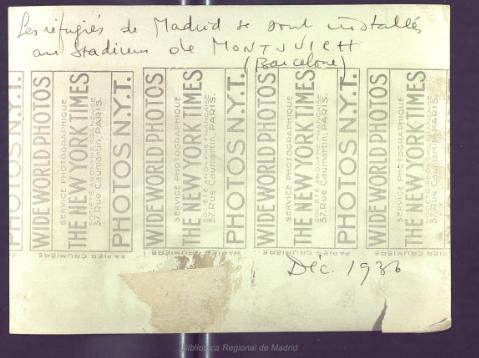 Les réfugiés de Madrid se sont installés
au Stadium de MONTJUICH
(Barcelone)
PHOTOS N.Y.T.
WIDE WORLD PHOTOS
SERVICE PHOTOGRAPHIQUE
THE NEW YORK TIMES
SOCIÉTÉ ANONYME FRANÇAISE
37, Rue Caumartin, PARIS.
PHOTOS N.Y.T.
WIDE WORLD PHOTOS
SERVICE PHOTOGRAPHIQUE
THE NEW YORK TIMES
SOCIÉTÉ ANONYME FRANÇAISE
37, Rue Caumartin, PARIS.
PHOTOS N.Y.T.
WIDE WORLD PHOTOS
SERVICE PHOTOGRAPHIQUE
THE NEW YORK TIMES
SOCIÉTÉ ANONYME FRANÇAISE
37, Rue Caumartin, PARIS.
PHOTOS N.Y.T.
WIDE WORLD PHOTOS
SERVICE PHOTOGRAPHIQUE
THE NEW YORK TIMES
SOCIÉTÉ ANONYME FRANÇAISE
37, Rue Caumartin, PARIS.
Déc. 1936
Biblioteca Regional de Madrid